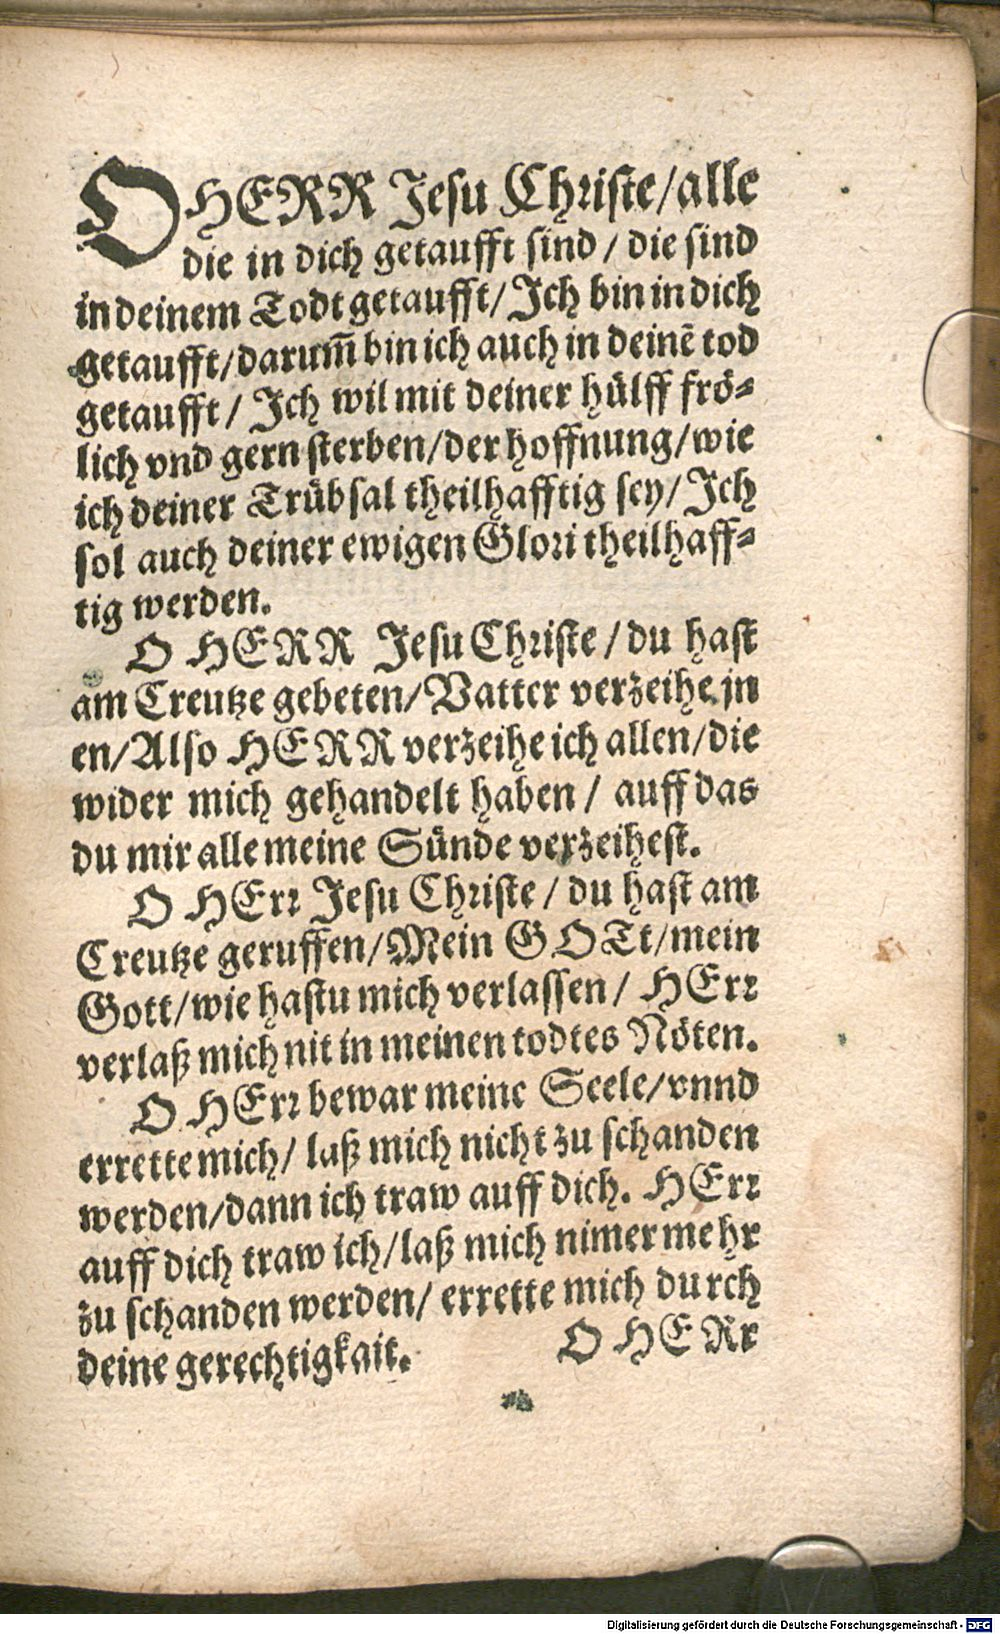 O HERR Jesu Christe/alle
die in dich getaufft sind / die sind
in deinem Todt getaufft/ Ich bin in dich
getaufft/darum̃ bin ich auch in deinē tod
getaufft/ Ich wil mit deiner hülff frö-
lich vnd gern sterben/der hoffnung/wie
ich deiner Trübsal theilhafftig sey/ Ich
sol auch deiner ewigen Glori theilhaff-
tig werden.
O HERR Jesu Christe / du hast
am Creutze gebeten/Vatter verzeihe jn
en/Also HERR verzeihe ich allen/die
wider mich gehandelt haben / auff das
du mir alle meine Sünde verzeihest.
O HErr Jesu Christe / du hast am
Creutze geruffen/Mein GOTt/mein
Gott/wie hastu mich verlassen/ HErr
verlaß mich nit in meinen todtes Nöten.
O HErr bewar meine Seele/vnnd
errette mich/ laß mich nicht zu schanden
werden/dann ich traw auff dich. HErr
auff dich traw ich/laß mich nimermehr
zu schanden werden/ errette mich durch
deine gerechtigkait. O HERr
Digitalisierung gefördert durch die Deutsche Forschungsgemeinschaft - DFG